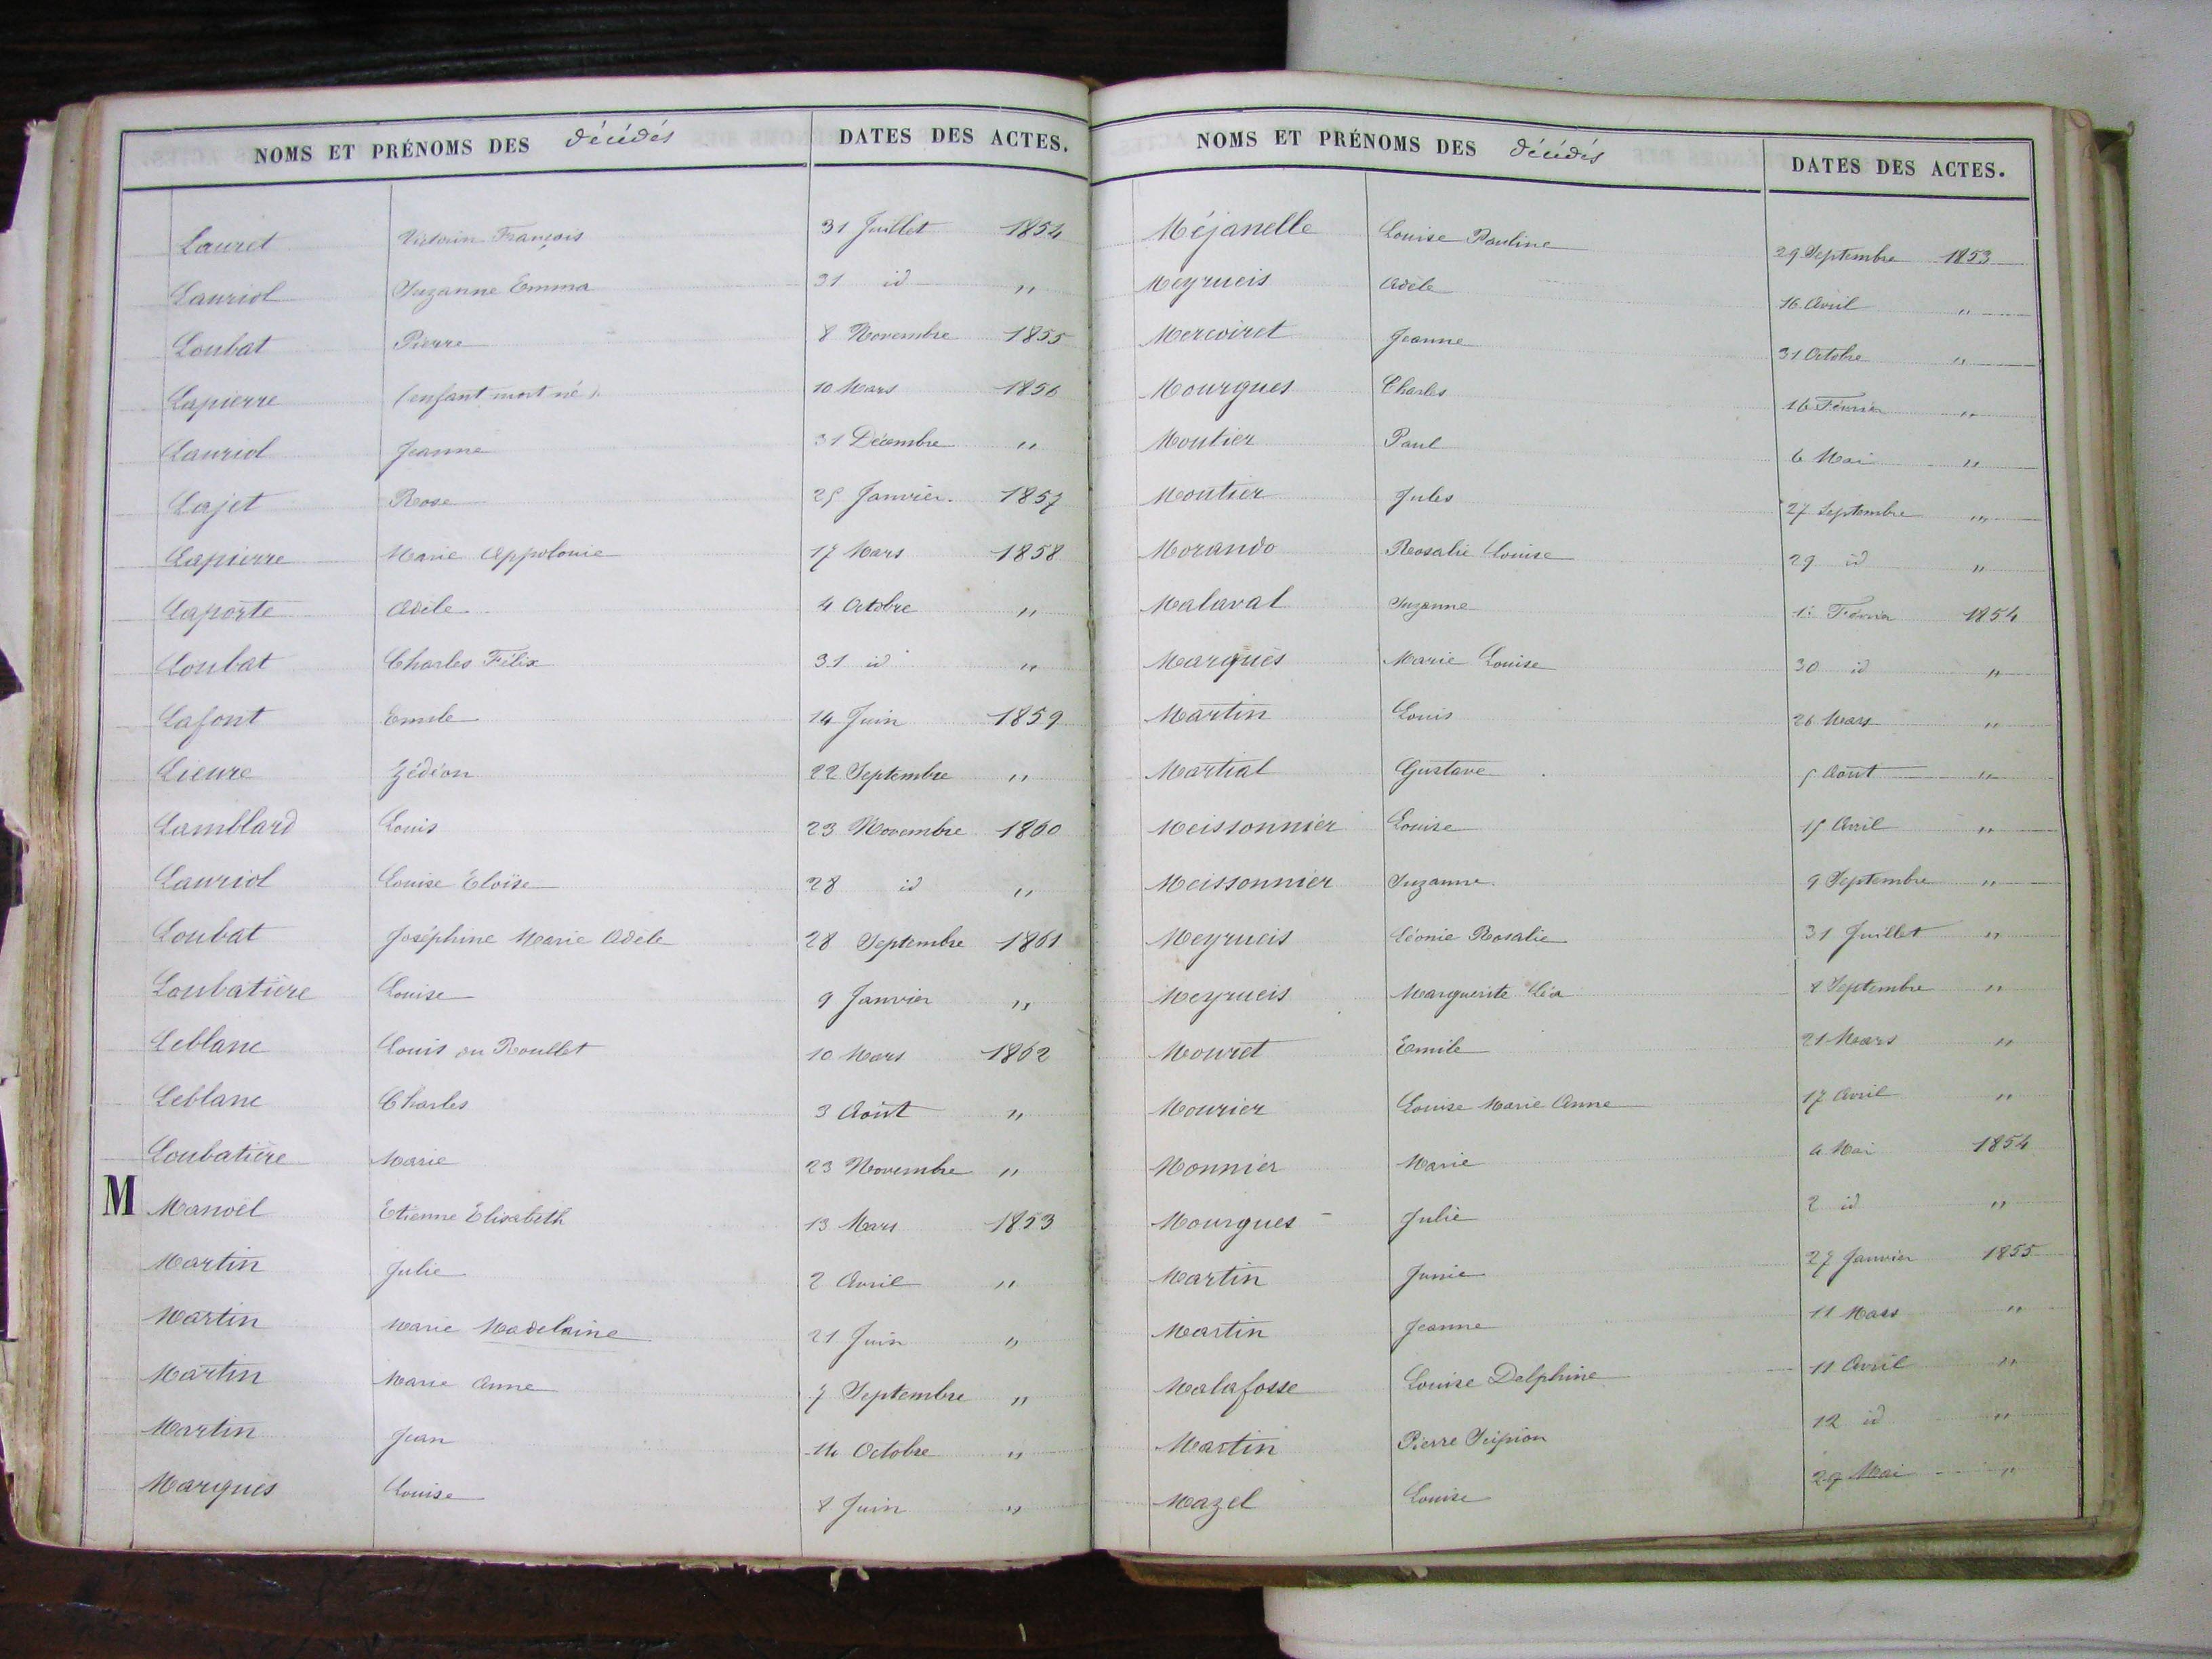 NOMS ET PRÉNOMS DES décédés DATES DES ACTES.
Lauret Victorin François 31 Juillet 1854
Lauriol Suzanne Emma 31 id "
Loubat Pierre 8 Novembre 1855
Lapierre (enfant mort né) 10 Mars 1856
Lauriol Jeanne 31 Décembre "
Lajet Rose 25 Janvier. 1857
Lapierre Marie Appolonie 17 Mars 1858
Laporte Adèle 4 Octobre "
Loubat Charles Félix 31 id "
Lafont Emile 14 Juin 1859
Lieure Gédéon 22 Septembre "
Lamblard Louis 23 Novembre 1860
Lauriol Louise Eloïse 28 id "
Loubat Joséphine Marie Adèle 28 Septembre 1861
Loubatière Louise 9 Janvier "
Leblanc Louis ou Roullet 10 Mars 1862
Leblanc Charles 3 Août "
Loubatière Marie 23 Novembre "
M Manoël Etienne Elisabeth 13 Mars 1853
Martin Julie 2 Avril "
Martin Marie Madelaine 21 Juin "
Martin Marie Anne 7 Septembre "
Martin Jean 14 Octobre "
Marquès Louise 8 Juin "
NOMS ET PRÉNOMS DES décédés DATES DES ACTES.
Méjanelle Louise Pauline 29 Septembre 1853
Meyrueis Adèle 16 Avril "
Mercoiret Jeanne 31 Octobre "
Mourgues Charles 16 Février "
Moutier Paul 6 Mai "
Moutier Jules 27 Septembre "
Morando Rosalie Louise 29 id "
Malaval Suzanne 1er Février 1854
Marquès Marie Louise 30 id "
Martin Louis 26 Mars "
Martial Gustave 5 Août "
Meissonnier Louise 15 Avril "
Meissonnier Suzanne 9 Septembre "
Meyrueis Léonie Rosalie 31 Juillet "
Meyrueis Marguerite Léa 8 Septembre "
Mouret Emile 21 Mars "
Mourier Louise Marie Anne 17 Avril "
Monnier Marie 4 Mai 1854
Mourgues Julie 2 id "
Martin Junie 27 Janvier 1855
Martin Jeanne 11 Mars "
Malafosse Louise Delphine 11 Avril "
Martin Pierre Scipion 12 id "
Mazel Louise 29 Mai "